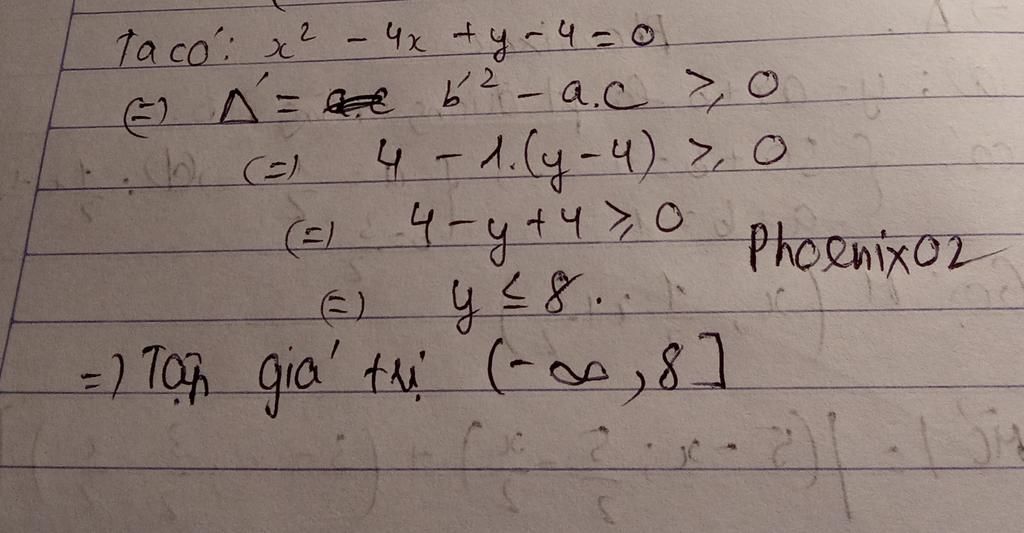 Ta có: x² - 4x + y - 4 = 0
(=) Δ' = b'² - a.c ≥ 0
(=) 4 - 1.(y - 4) ≥ 0
(=) 4 - y + 4 ≥ 0
Phoenix02
(=) y ≤ 8.
=) Tập giá trị (-∞, 8]